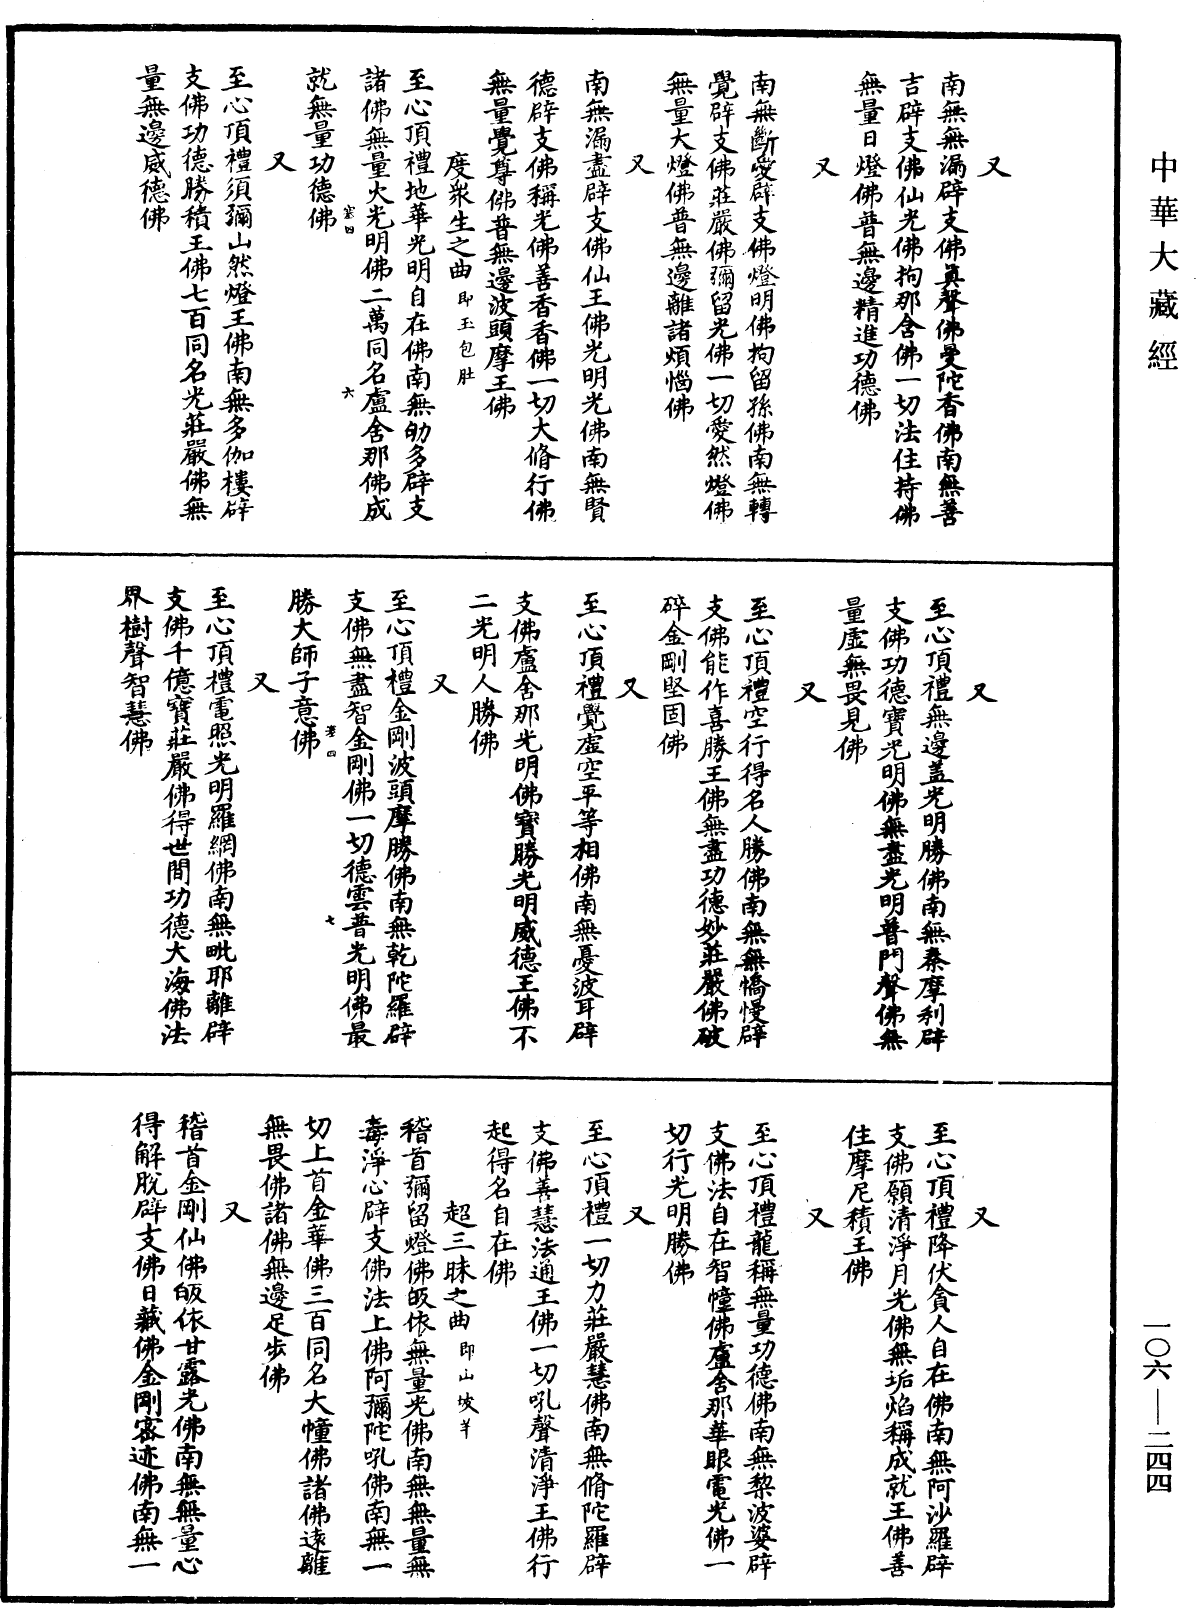 中華大藏經
又
南無無漏辟支佛真聲佛曼陀香佛南無善
吉辟支佛仙光佛拘那含佛一切法住持佛
無量日燈佛普無邊精進功德佛
又
南無斷愛辟支佛燈明佛拘留孫佛南無轉
覺辟支佛莊嚴佛彌留光佛一切愛然燈佛
無量大燈佛普無邊離諸煩惱佛
又
南無漏盡辟支佛仙王佛光明光佛南無賢
德辟支佛稱光佛善香香佛一切大脩行佛
無量覺尊佛普無邊波頭摩王佛
度衆生之曲 即玉包肚
至心頂禮地華光明自在佛南無㔹多辟支
諸佛無量火光明佛二萬同名盧舍那佛成
就無量功德佛
又
至心頂禮須彌山然燈王佛南無多伽樓辟
支佛功德勝積王佛七百同名光莊嚴佛無
量無邊威德佛
又
至心頂禮無邊蓋光明勝佛南無秦摩利辟
支佛功德寶光明佛無盡光明普門聲佛無
量虛無畏見佛
又
至心頂禮空行得名人勝佛南無無憍慢辟
支佛能作喜勝王佛無盡功德妙莊嚴佛破
碎金剛堅固佛
又
至心頂禮覺虛空平等相佛南無憂波耳辟
支佛盧舍那光明佛寶勝光明威德王佛不
二光明人勝佛
又
至心頂禮金剛波頭摩勝佛南無乾陀羅辟
支佛無盡智金剛佛一切德雲普光明佛最
勝大師子意佛
又
至心頂禮電照光明羅網佛南無毗耶離辟
支佛千億寶莊嚴佛得世間功德大海佛法
界樹聲智慧佛
又
至心頂禮降伏貪人自在佛南無阿沙羅辟
支佛願清淨月光佛無垢焰稱成就王佛善
住摩尼積王佛
又
至心頂禮龍稱無量功德佛南無黎波婆辟
支佛法自在智幢佛盧舍那華眼電光佛一
切行光明勝佛
又
至心頂禮一切力莊嚴慧佛南無脩陀羅辟
支佛善慧法通王佛一切吼聲清淨王佛行
起得名自在佛
超三昧之曲 即山坡羊
稽首彌留燈佛皈依無量光佛南無無量無
毒淨心辟支佛法上佛阿彌陀吼佛南無一
切上首金華佛三百同名大幢佛諸佛遠離
無畏佛諸佛無邊足步佛
又
稽首金剛仙佛皈依甘露光佛南無無量心
得解脫辟支佛日藏佛金剛密迹佛南無一
一〇六—二四四